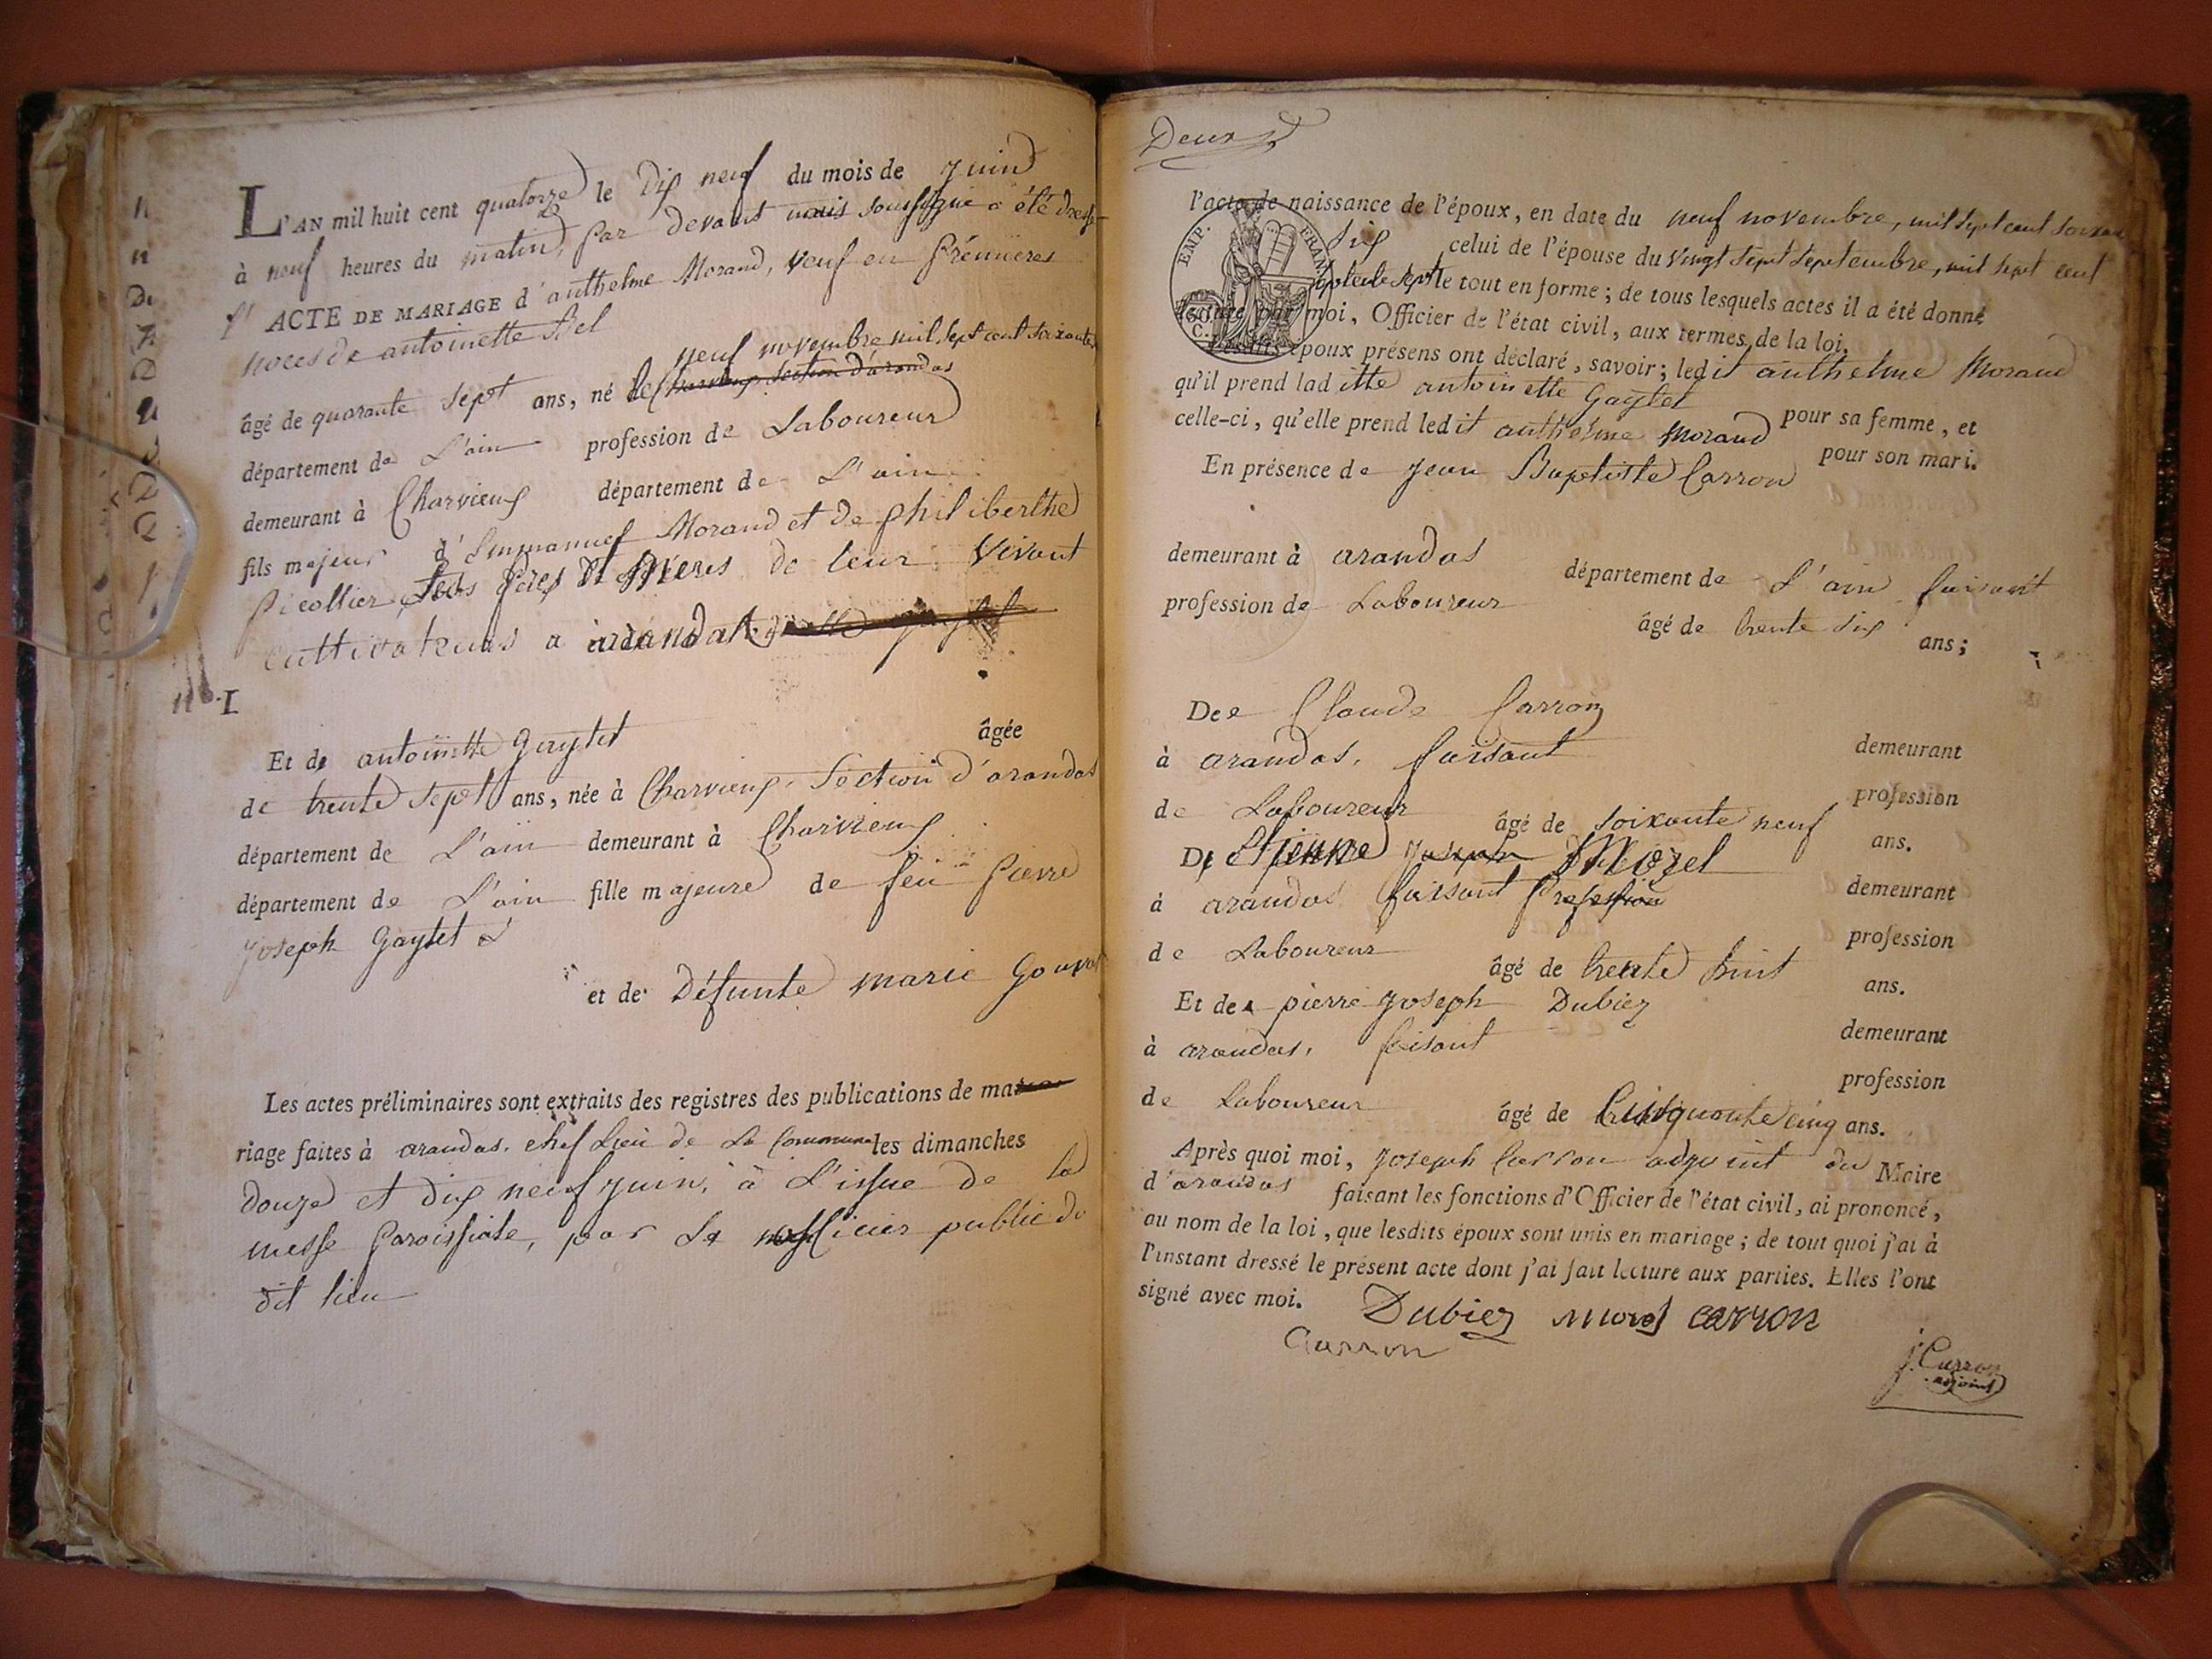 L'AN mil huit cent quatorze le Dix neuf du mois de juin
à neuf heures du matin, par devant nous soussigné a été dressé
l'ACTE DE MARIAGE d'anthelme Morand, veuf en Prémieres
noces de antoinette
neuf novembre mil sept cent soixante
âgé de quarante sept ans, né le Charvieux section d'arandas
département de L'ain profession de Laboureur
demeurant à Charvieux département de L'ain
fils majeur d'Emmanuel Morand et de philiberthe
Picollier, Pères et Mères de leur Vivant
Cultivateurs a arandas
Et de antoinette Gaytet âgée
de trente sept ans, née à Charvieux, Section d'arandas
département de L'ain demeurant à Charvieux
département de L'ain fille majeure de feu Pierre
Joseph Gaytet
et de Défunte marie
Les actes préliminaires sont extraits des registres des publications de ma
riage faites à arandas, chef Lieu de La Commune les dimanches
douze et dix neuf juin, à L'issue de la
messe Paroissiale, par officier public du
dit lieu
Deux
l'acte de naissance de l'époux, en date du neuf novembre, mil sept cent soixante
EMP. FRAN.
six celui de l'épouse du vingt sept septembre, mil sept cent
septente sept le tout en forme; de tous lesquels actes il a été donné
lecture par moi, Officier de l'état civil, aux termes de la loi.
Lesdits époux présens ont déclaré, savoir; ledit anthelme Morand
qu'il prend laditte antoinette Gaytet pour sa femme, et
celle-ci, qu'elle prend ledit anthelme Morand pour son mari.
En présence de Jean Baptiste Carron
demeurant à arandas département de L'ain faisant
profession de Laboureur âgé de trente six ans;
De Claude Carron demeurant
à arandas, faisant profession
de Laboureur âgé de soixante neuf ans.
De Etienne Morel demeurant
à arandas faisant Profession profession
de Laboureur âgé de trente huit ans.
Et de pierre Joseph Dubiez demeurant
à arandas, faisant profession
de Laboureur âgé de Cinquante cinq ans.
Après quoi moi, Joseph Carron adjoint du Maire
d'arandas faisant les fonctions d'Officier de l'état civil, ai prononcé,
au nom de la loi, que lesdits époux sont unis en mariage; de tout quoi j'ai à
l'instant dressé le présent acte dont j'ai fait lecture aux parties. Elles l'ont
signé avec moi. Dubiez morel carron
Carron
j. Carron
adjoint